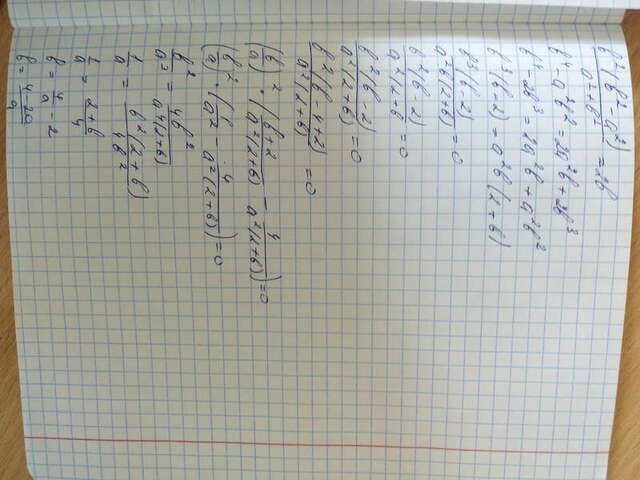 b²(b²-a²)/(a²+b²) = 2b
b⁴-a²b² = 2a²b+2b³
b⁴-2b³ = 2a²b+a²b²
b³(b-2) = a²b(2+b)
b³(b-2)/(a²b(2+b)) = 0
b²(b-2)/(a²(2+b) = 0
b²(b-2)/(a²(2+b)) = 0
b²(b-4+2)/(a²(2+b)) = 0
(b/a)² · (b+2/(a²(2+b)) - 4/(a²(2+b))) = 0
(b/a)² · (b/a² - 4/(a²(2+b))) = 0
b²/a³ = 4b²/(a⁴(2+b))
1/a = b²(2+b)/(4b²)
1/a = (2+b)/4
b = 4/a - 2
b = (4-2a)/a